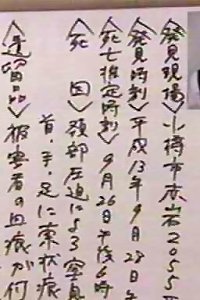 〈発見現場〉小樽市赤岩2055
〈発見時刻〉平成13年9月28日午
〈死亡推定時刻〉9月26日午後6時
〈死 因〉頸部圧迫による窒息
首・手・足に索状痕
〈遺留品〉被害者の血痕が